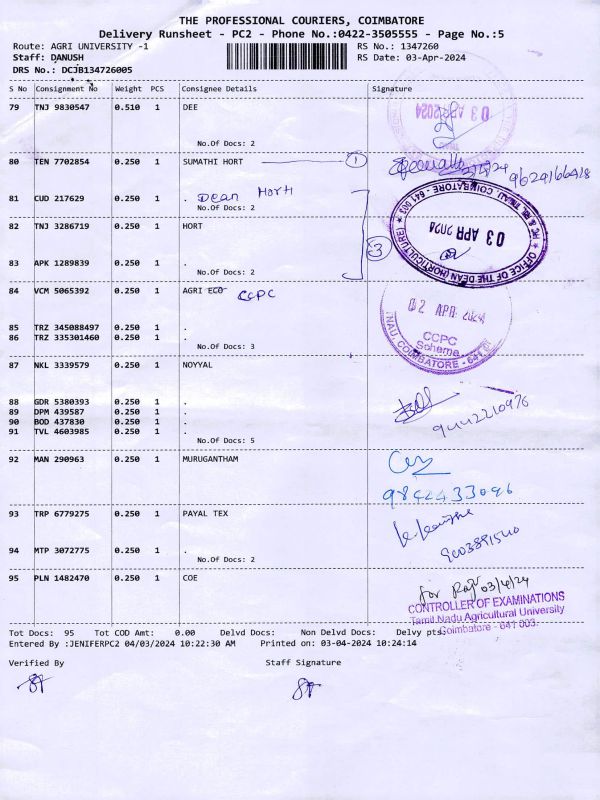 THE PROFESSIONAL COURIERS, COIMBATORE
Delivery Runsheet - PC2 - Phone No.:0422-3505555 - Page No.:5
Route: AGRI UNIVERSITY -1 RS No.: 1347260
Staff: DANUSH RS Date: 03-Apr-2024
DRS No.: DCJB134726005
S No Consignment No Weight PCS Consignee Details Signature
79 TNJ 9830547 0.510 1 DEE
03 APR 2024
No.Of Docs: 2
80 TEN 7702854 0.250 1 SUMATHI HORT 1
9629166418
81 CUD 217629 0.250 1 . Dean Horti
No.Of Docs: 2
82 TNJ 3286719 0.250 1 HORT
3
OFFICE OF THE DEAN (HORTICULTURE)
03 APR 2024
83 APK 1289839 0.250 1 .
No.Of Docs: 2
84 VCM 5065392 0.250 1 AGRI ECO CCPC
02 APR 2024
CCPC
Scheme
TNAU, COIMBATORE - 641 0
85 TRZ 345088497 0.250 1 .
86 TRZ 335301460 0.250 1 .
No.Of Docs: 3
87 NKL 3339579 0.250 1 NOYYAL
88 GDR 5380393 0.250 1 .
89 DPM 439587 0.250 1 .
90 BOD 437830 0.250 1 .
91 TVL 4603985 0.250 1 .
9442210976
No.Of Docs: 5
92 MAN 290963 0.250 1 MURUGANTHAM
9842433096
93 TRP 6779275 0.250 1 PAYAL TEX
94 MTP 3072775 0.250 1 .
9003891540
No.Of Docs: 2
95 PLN 1482470 0.250 1 COE
for 03/4/24
CONTROLLER OF EXAMINATIONS
Tamil Nadu Agricultural University
Coimbatore - 641 003.
Tot Docs: 95 Tot COD Amt: 0.00 Delvd Docs: Non Delvd Docs: Delvy pts:
Entered By :JENIFERPC2 04/03/2024 10:22:30 AM Printed on: 03-04-2024 10:24:14
Verified By Staff Signature